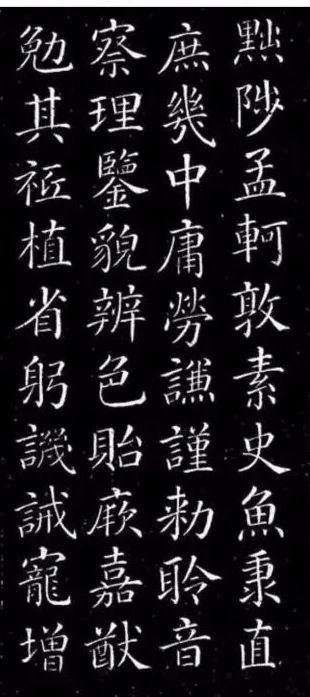 黜陟孟軻敦素史魚秉直
庶幾中庸勞謙謹勅聆音
察理鑒貌辨色貽厥嘉猷
勉其祗植省躬譏誡寵增